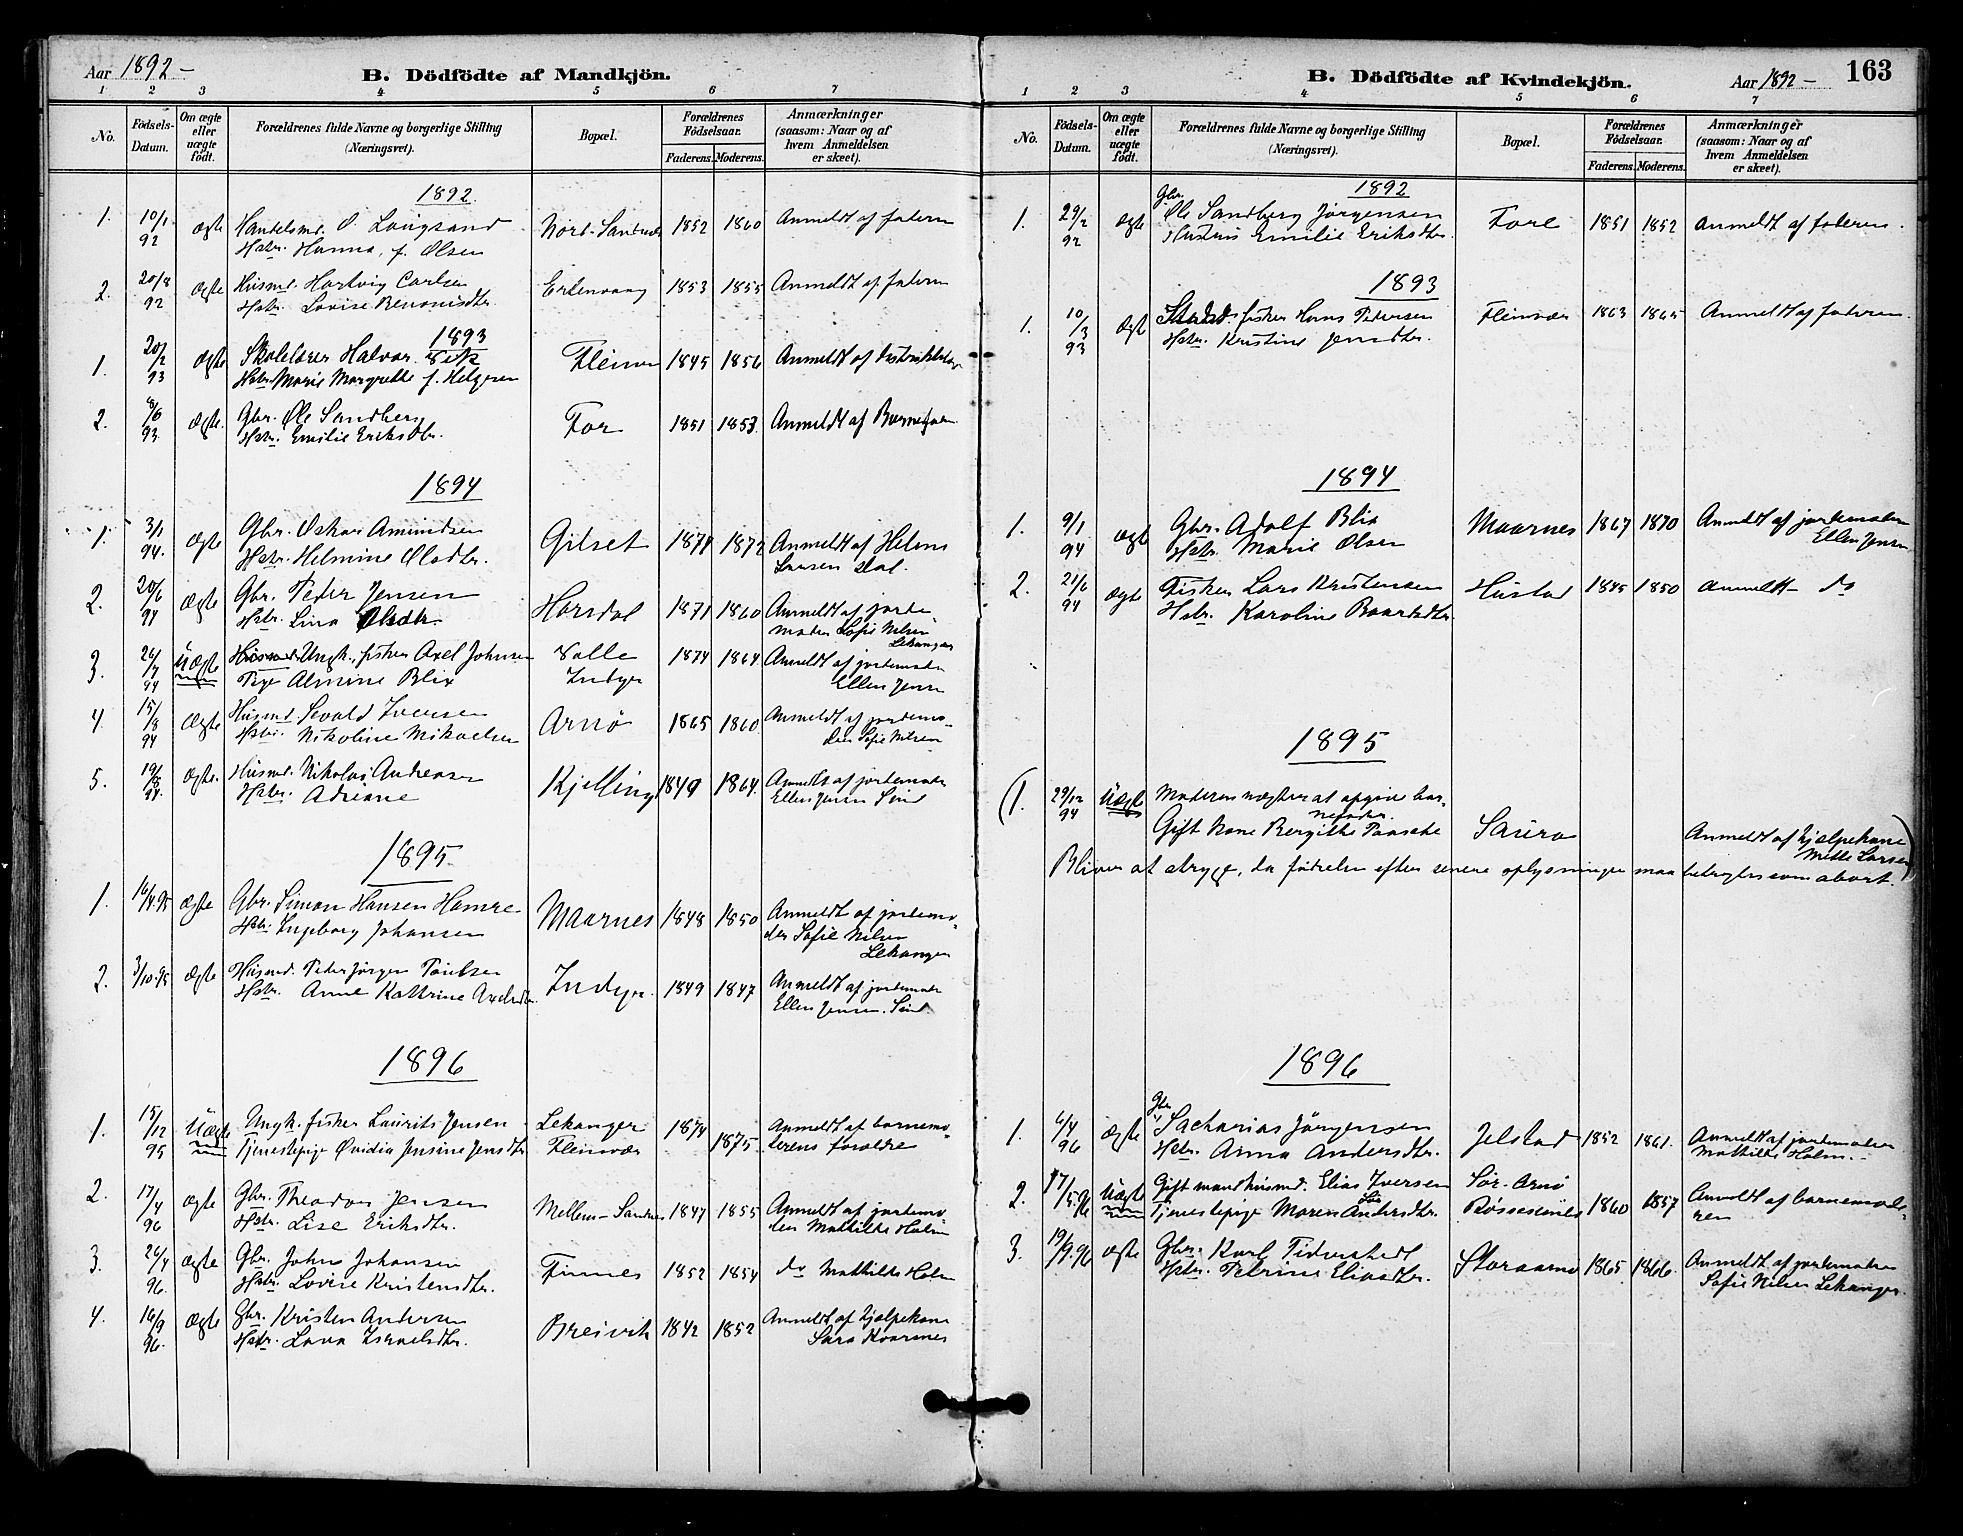 Aar 1892 –
B. Dödfödte af Mandkjön.
1 2 3 4 5 6 7
No.
Födsels-
Datum.
Om ægte
eller
uægte
födt.
Forældrenes fulde Navne og borgerlige Stilling
(Næringsvei).
Bopæl.
Forældrenes
Födselsaar.
Faderens. Moderens.
Anmærkninger
(saasom: Naar og af
hvem Anmeldelsen
er skeet).
1892
1. 10/1 92 ægte Handelsmd. O. Langsand Nord-Sandnes 1852 1860 Anmeldt af faderen
Hstr. Hanna, f. Olsen
2. 20/8 92 ægte Husmd. Hartvig Carlsen 1853 1855 Anmeldt af faderen
Hstr. Lovise Benonisdtr.
1893
1. 20/2 93 ægte Skolelærer Halvor Fleinvær 1845 1856 Anmeldt af
Hstr. Marie Margrethe f. Helgesen
2. 8/6 93 ægte. Gbr. Ole Sandberg For 1851 1853. Anmeldt af Barnefaderen
Hstr. Emilie Eriksdtr.
1894
1. 3/1 94. ægte Gbr. Oskar Amundsen Gilset 1871 1872 Anmeldt af
Hstr. Helmine Olsdtr. Larsen
2. 20/6 94 ægte Gbr. Peder Jensen Horsdal 1871 1860 Anmeldt af jorde-
Hstr. Lina Olsdtr. moder Sofie Nilsen
Lekanger
3. 26/7 94 Uægte Ungk. fisker Axel Johnsen Valle 1874 1864 Anmeldt af jordemoder
Pige Almine Blix Indyr Ellen Jensen
4. 15/8 94 ægte Husmd. Sevald Iversen Arnö 1865 1860 Anmeldt af jordemo-
Hstr. Nikoline Mikaelsen der Sofie Nilsen
5. 19/8 94. ægte. Husmd. Nikolai Andreasen Kjelling 1849 1864. Anmeldt af jordemoder
Hstr. Adriane Ellen Jensen Sund
1895
1. 16/4 95 ægte Gbr. Simon Hansen Hamre Maarnes 1848 1850 Anmeldt af jordemo-
Hstr. Ingeborg Johansen der Sofie Nilsen
Lekanger
2. 3/10 95 ægte Husmd. Peder Jörgen Paulsen Indyr. 1849 1847 Anmeldt af jordemoder
Hstr. Anne Kathrine Axelsdtr. Ellen Jensen. Sund
1896
1. 15/12 95 Uægte Ungk. fisker Laurits Jensen Lekanger 1874 1875 Anmeldt af barnemo-
Tjenestepige Ovidia Jensine Jensdtr. Fleinvær derens forældre
2. 17/4 96 ægte Gbr. Theodor Jensen Mellem-Sandnes 1847 1855 Anmeldt af jordemo-
Hstr. Lise Eriksdtr. der Mathilde Holm
3. 26/4 96. ægte Gbr. John Johansen Finnes 1852 1854 do Mathilde Holm
Hstr. Lovise Kristensdtr.
4. 16/9 96. ægte Gbr. Kristen Andersen Breivik 1842 1852 Anmeldt af hjælpekone
Hstr. Lava Israelsdtr. Sara Kvarsnes
B. Dödfödte af Kvindekjön.
Aar 1892 – 163
1 2 3 4 5 6 7
No.
Födsels-
Datum.
Om ægte
eller
uægte
födt.
Forældrenes fulde Navne og borgerlige Stilling
(Næringsvei).
Bopæl.
Forældrenes
Födselsaar.
Faderens. Moderens.
Anmærkninger
(saasom: Naar og af
hvem Anmeldelsen
er skeet).
1892
1. 29/2 92 ægte Gbr. Ole Sandberg Jörgensen Fore 1851 1852 Anmeldt af faderen.
Hustru Emilie Eriksdtr.
1893
1. 10/3 93 ægte fisker Hans Pedersen Fleinvær 1863 1865 Anmeldt af faderen.
Hstr. Kristine Jensdtr.
1894
1. 9/1 94 ægte Gbr. Adolf Blix Maarnes 1867 1870 Anmeldt af jordemoder
Hstr. Marie Olsen Ellen Jensen
2. 21/6 94 ægte Fisker Lars Kristensen Hustad 1845 1850 anmeldt – do
Hstr. Karoline Baardsdtr.
1895
(1. 29/12 94 Uægte Moderen nægter at opgive bar-
nefader.
Gift kone Bergitte Paasche Saura Anmeldt af hjælpekone
Mette Larsen)
Bliver at stryge, da födselen efter senere oplysninger maa betragtes som abort.
1896
1. 6/4 96 ægte Gbr. Sacharias Jörgensen Jelstad 1852 1861. Anmeldt af jordemoder
Hstr. Anna Andersdtr. Mathilde Holm. –
2. 17/5 96 Uægte Gift mand husmd. Elias Iversen Sör-Arnö 1860 1857 Anmeldt af barnemode-
Tjenestepige Maren Andersdtr. ren
3. 19/9. 96 ægte Gbr. Karl Tidemsdt Storarnö 1865. 1866. Anmeldt af jordemoder
Hstr. Petrine Eliasdtr. Sofie Nilsen Lekanger.